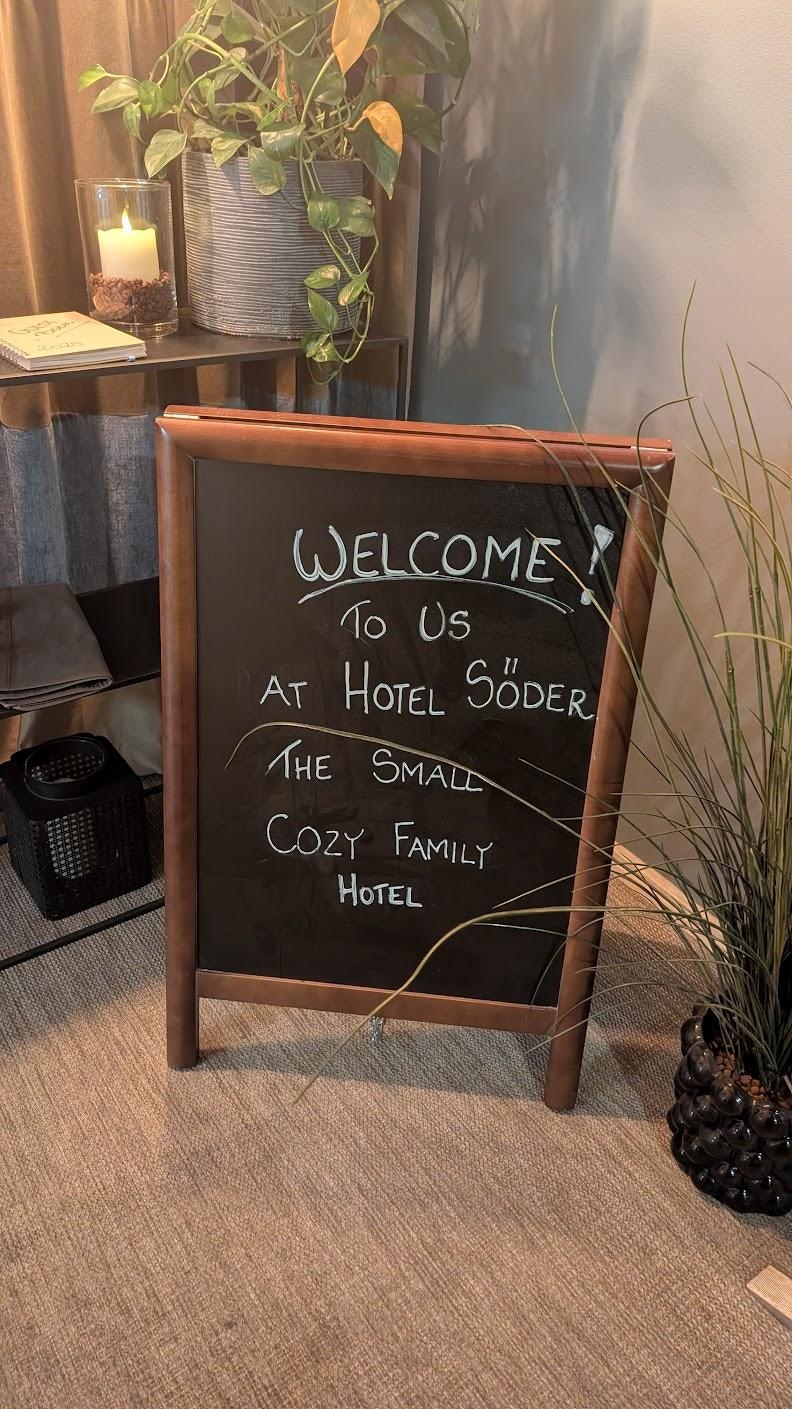 WELCOME!
TO US
AT HOTEL SÖDER
THE SMALL
COZY FAMILY
HOTEL
GUEST
BOOK